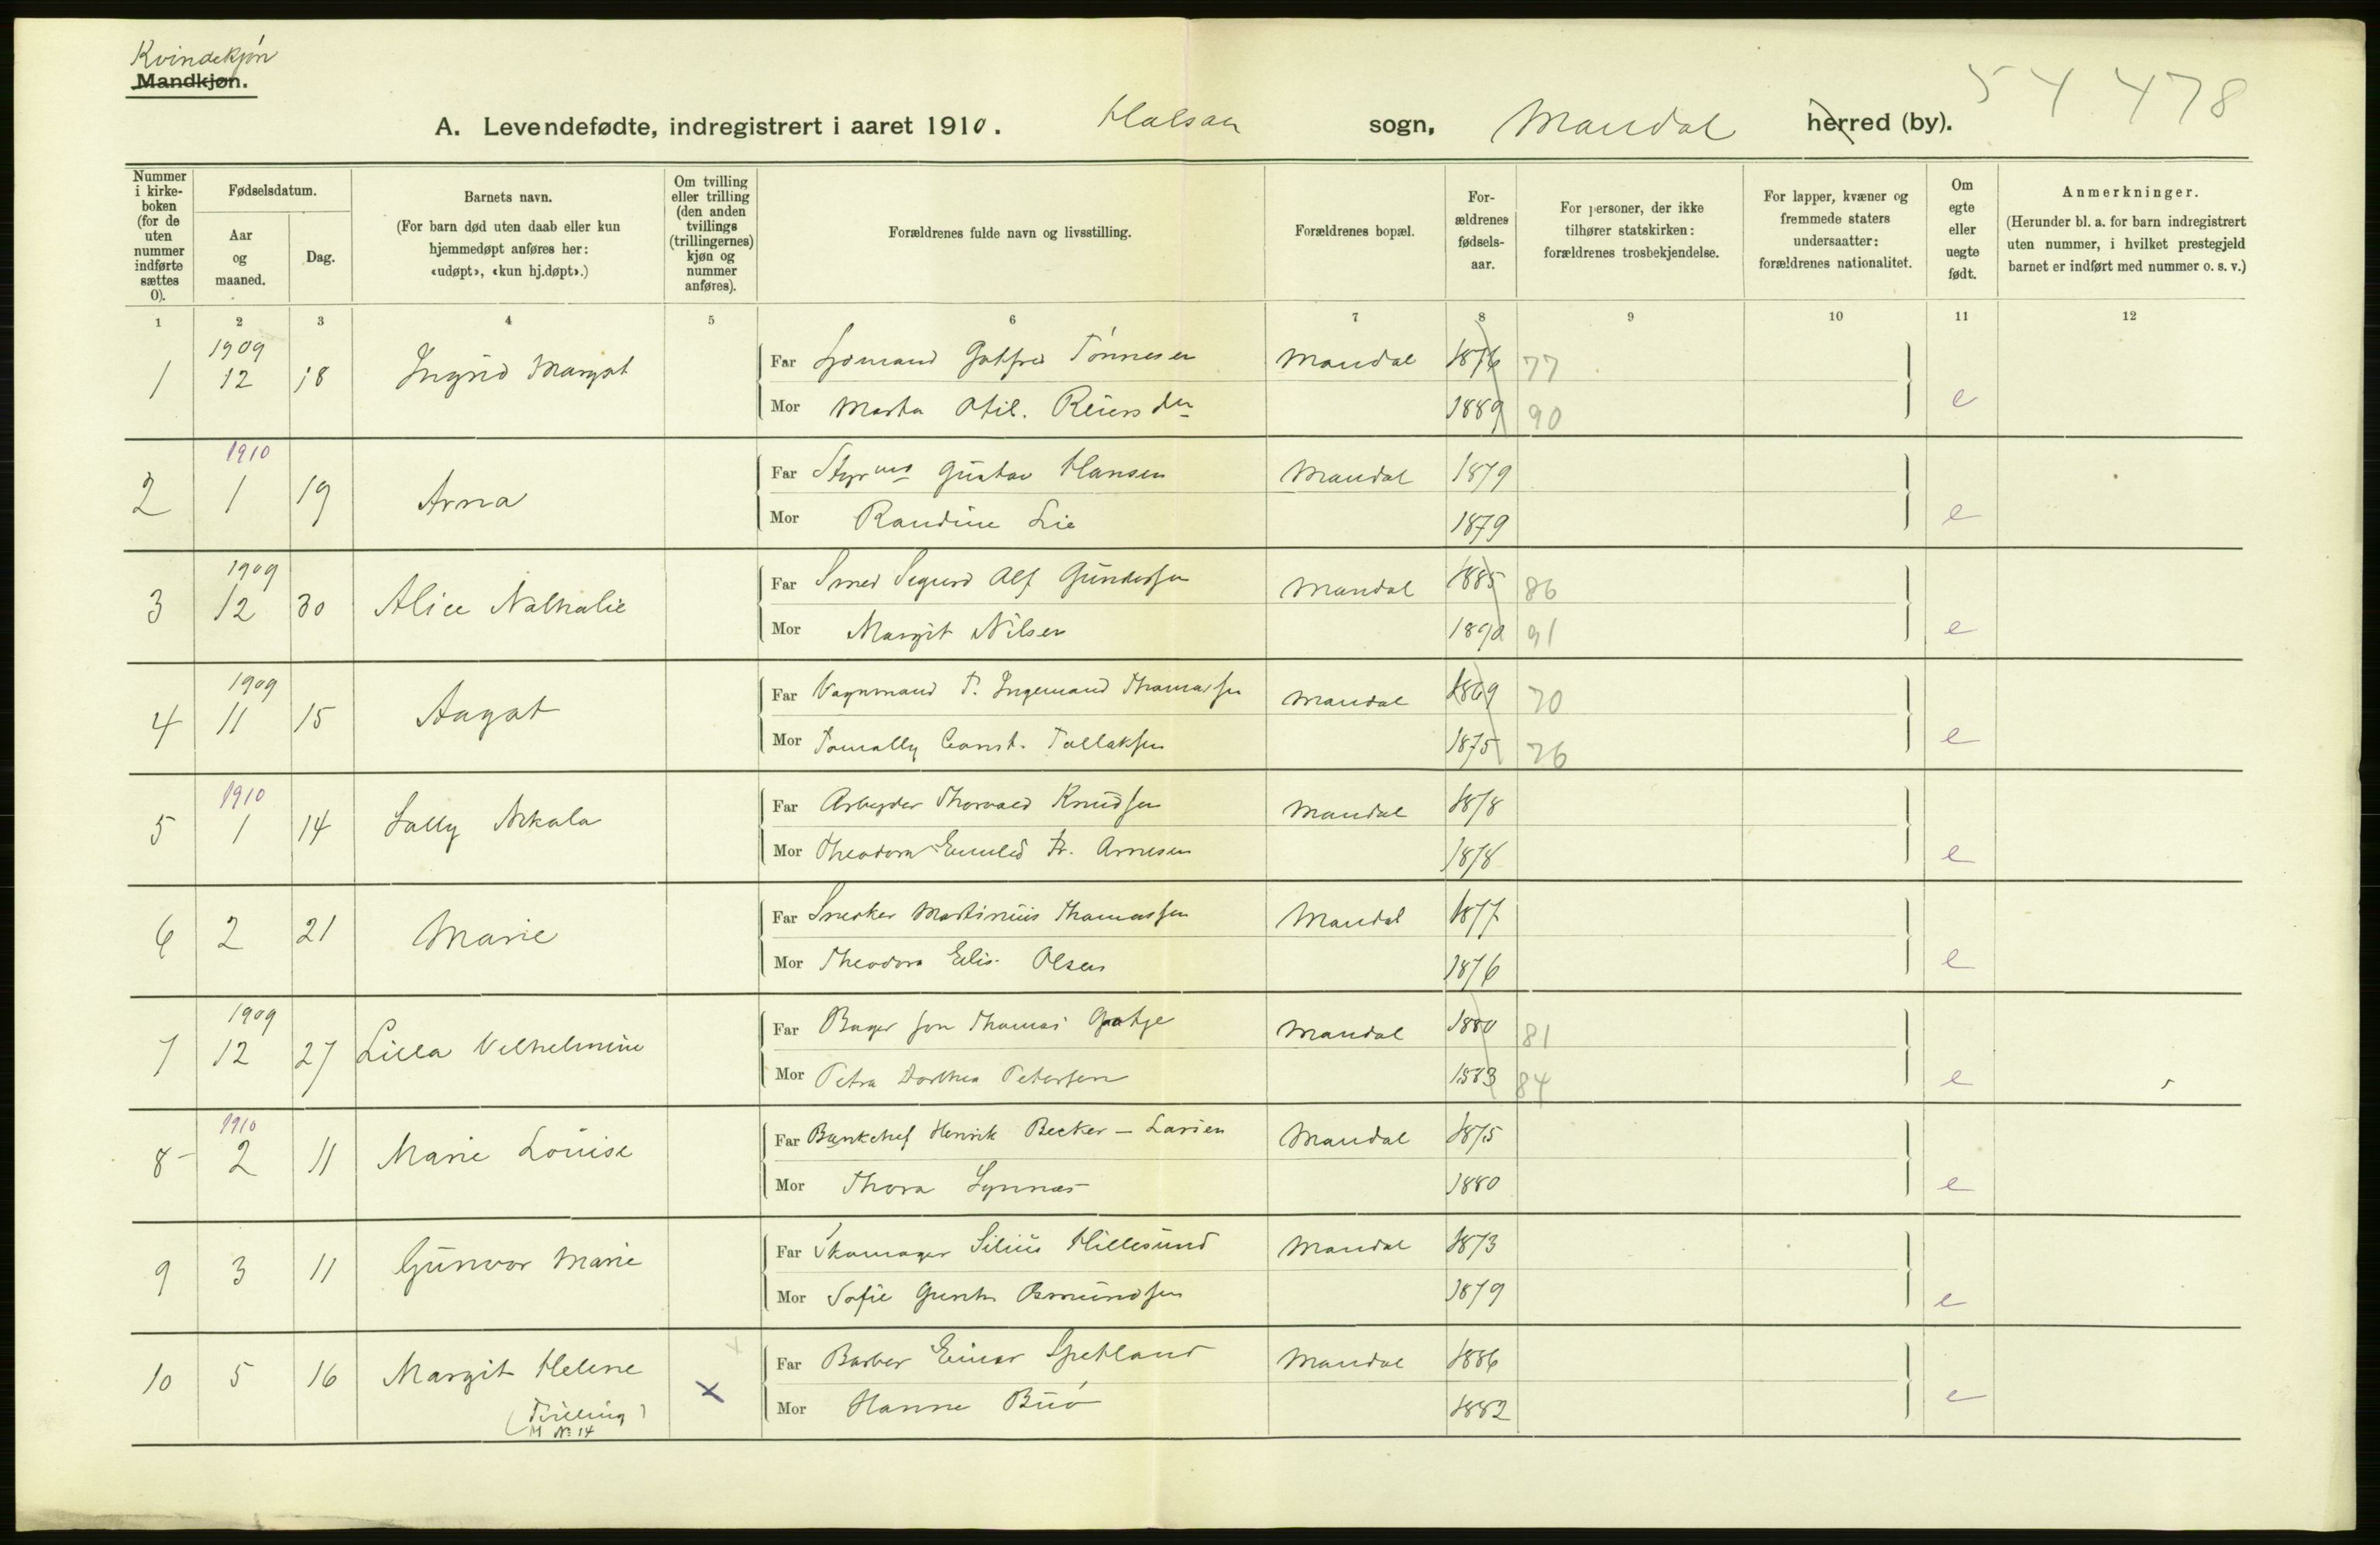 Kvindekjøn
Mandkjøn.
54 478
A. Levendefødte, indregistrert i aaret 1910. Halsaa sogn, Mandal herred (by).
Nummer i kirkeboken (for de uten nummer indførte sættes 0).
Fødselsdatum.
Aar og maaned.
Dag.
Barnets navn.
(For barn død uten daab eller kun hjemmedøpt anføres her: «udøpt», «kun hj.døpt».)
Om tvilling eller trilling (den anden tvillings (trillingernes) kjøn og nummer anføres).
Forældrenes fulde navn og livsstilling.
Forældrenes bopæl.
For-ældrenes fødsels-aar.
For personer, der ikke tilhører statskirken: forældrenes trosbekjendelse.
For lapper, kvæner og fremmede staters undersaatter: forældrenes nationalitet.
Om egte eller uegte født.
Anmerkninger.
(Herunder bl. a. for barn indregistrert uten nummer, i hvilket prestegjeld barnet er indført med nummer o. s. v.)
1 2 3 4 5 6 7 8 9 10 11 12
1 1909 12 18 Ingrid Margot Far Sjømand Gotfred Tønnesen Mandal 1876 77
Mor Marta Otil. Reiersdn 1889 90 e
2 1910 1 19 Arna Far Styrmd Gustav Hansen Mandal 1879
Mor Randine Lie 1879 e
3 1909 12 30 Alice Nathalie Far Smed Sigurd Alf Gundersen Mandal 1885 86
Mor Margit Nilsen 1890 91 e
4 1909 11 15 Aagot Far Vognmand T. Ingemand Thomassen Mandal 1869 70
Mor Const. Tallaksen 1875 76 e
5 1910 1 14 Sally Far Arbeyder Thorvald Knudsen Mandal 1878
Mor Theodora Arnesen 1878 e
6 2 21 Marie Far Snedker Martinius Thomassen Mandal 1877
Mor Theodora Elis. Olsen 1876 e
7 1909 12 27 Lilla Vilhelmine Far Bager Thomas Mandal 1880 81
Mor Petra Dorthea Petersen 1883 84 e
8 1910 2 11 Marie Louise Far Bankchef Henrik Becker-Larsen Mandal 1875
Mor Thora 1880 e
9 3 11 Gunvor Marie Far Skomager Silius Hillesund Mandal 1873
Mor Sofie Asmundsen 1879 e
10 5 16 Margit Helene x Far Barber Einar Spetland Mandal 1886
(Tvilling) Mor Hanne Buø 1882 e
M No 14